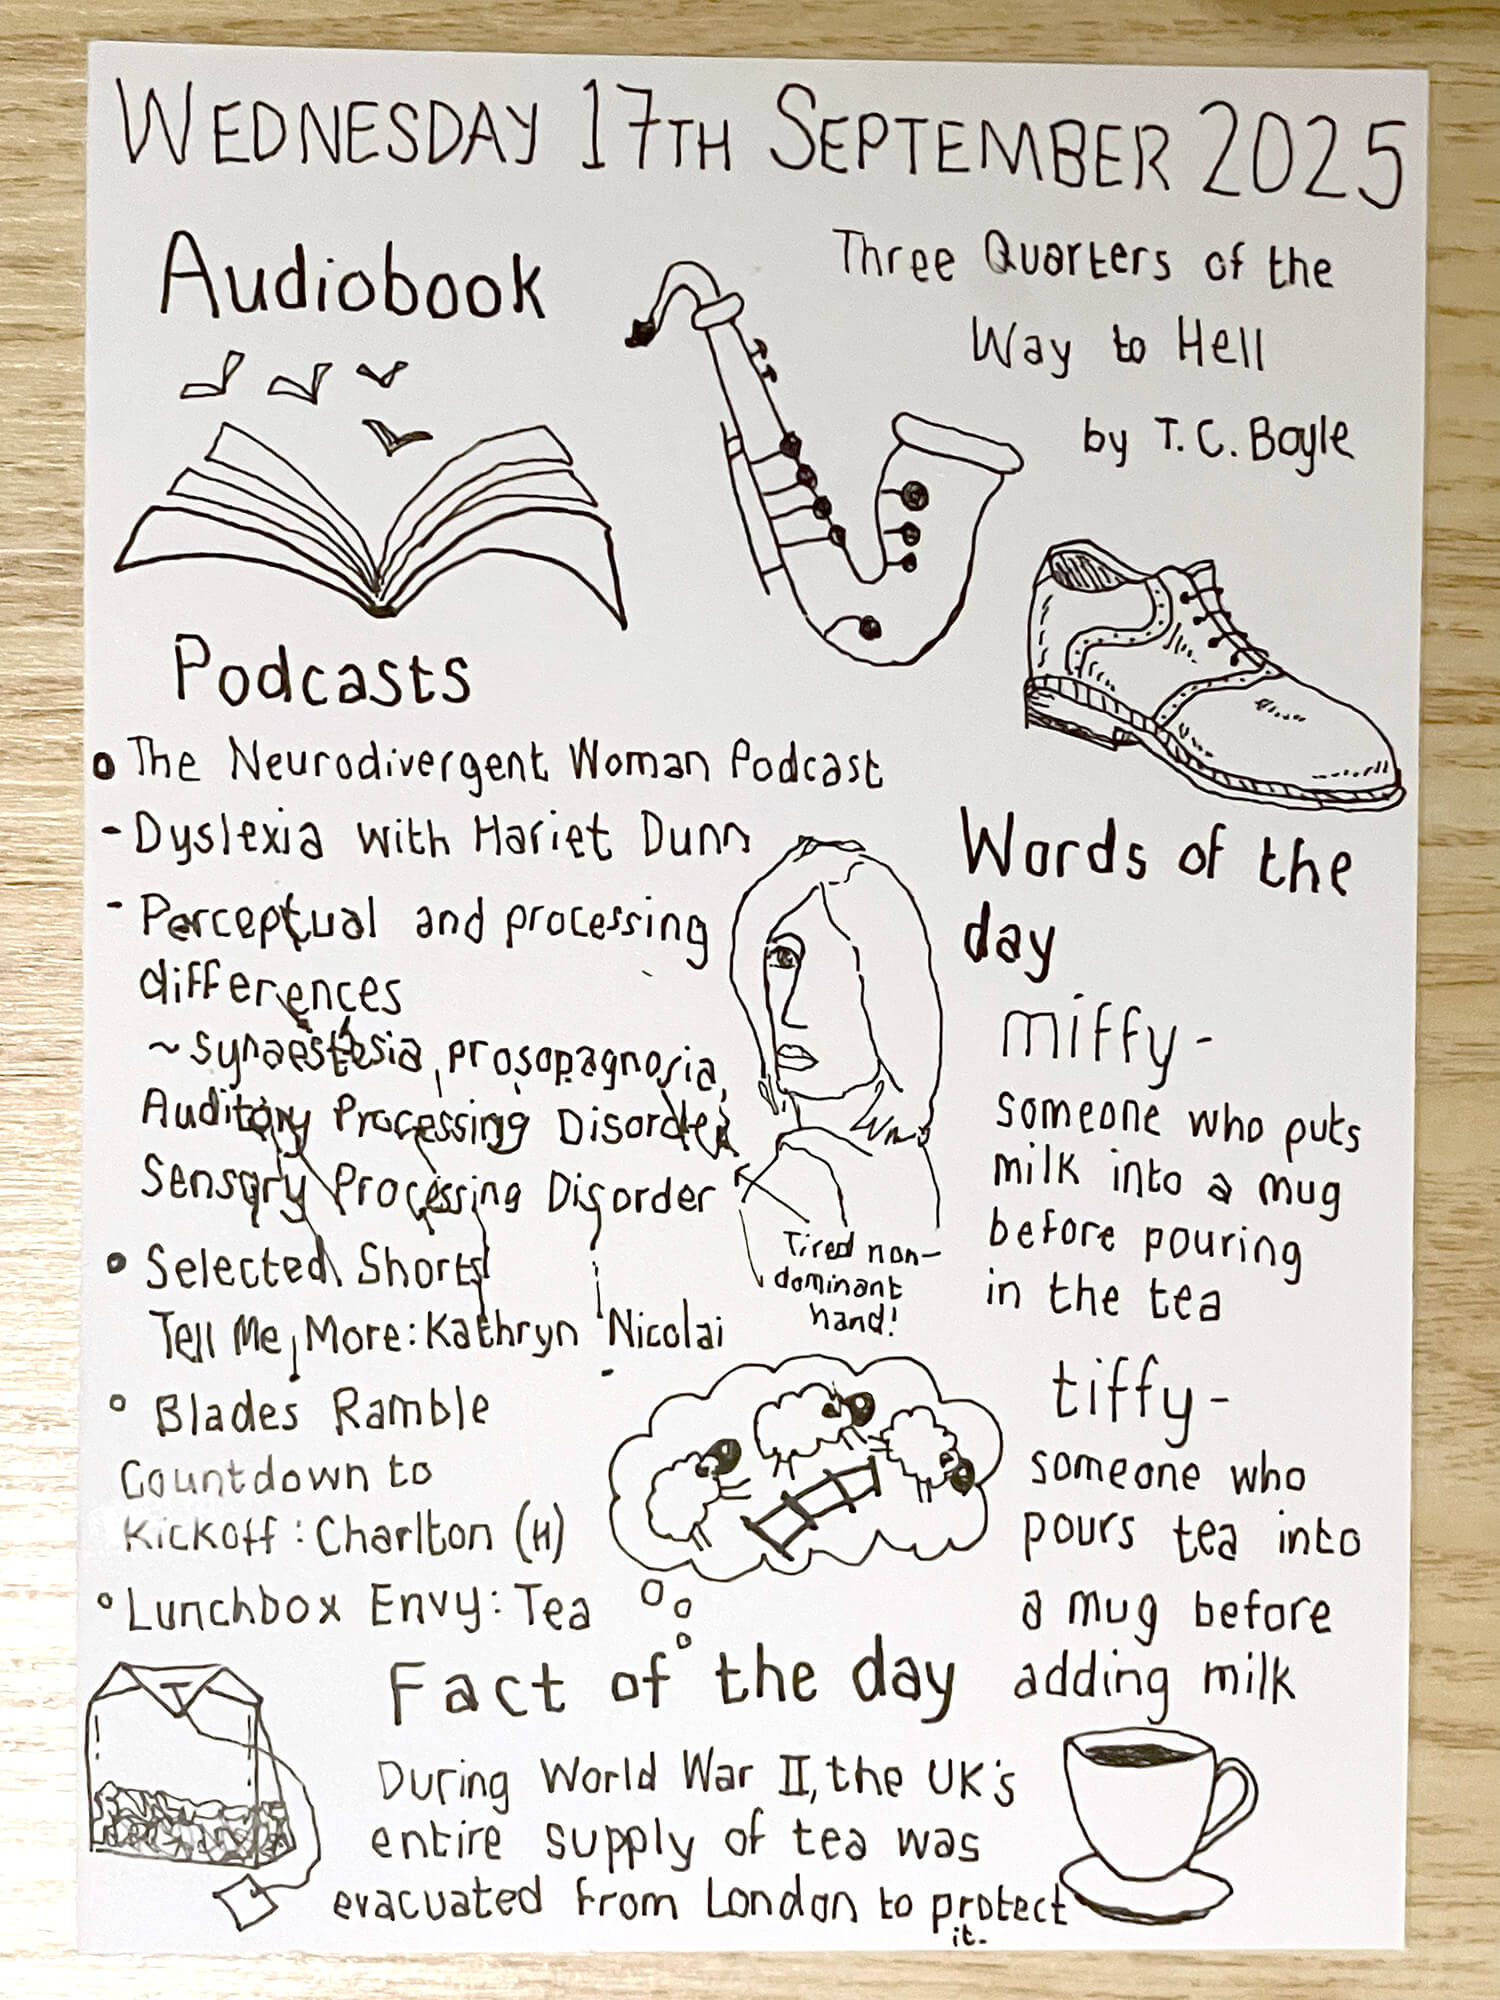 WEDNESDAY 17TH SEPTEMBER 2025
Audiobook
Three Quarters of the
Way to Hell
by T. C. Boyle
Podcasts
The Neurodivergent Woman Podcast
- Dyslexia with Hariet Dunn
- Perceptual and processing
differences
~ Synaestesia, prosopagnosia,
Auditory Processing Disorder
Sensory Processing Disorder
Tired non-
dominant
hand!
Selected Shorts
Tell Me More: Kathryn Nicolai
Blades Ramble
Countdown to
Kickoff: Charlton (H)
Lunchbox Envy: Tea
Words of the
day
miffy -
someone who puts
milk into a mug
before pouring
in the tea
tiffy -
someone who
pours tea into
a mug before
adding milk
T
Fact of the day
During World War II, the UK's
entire supply of tea was
evacuated from London to protect
it.